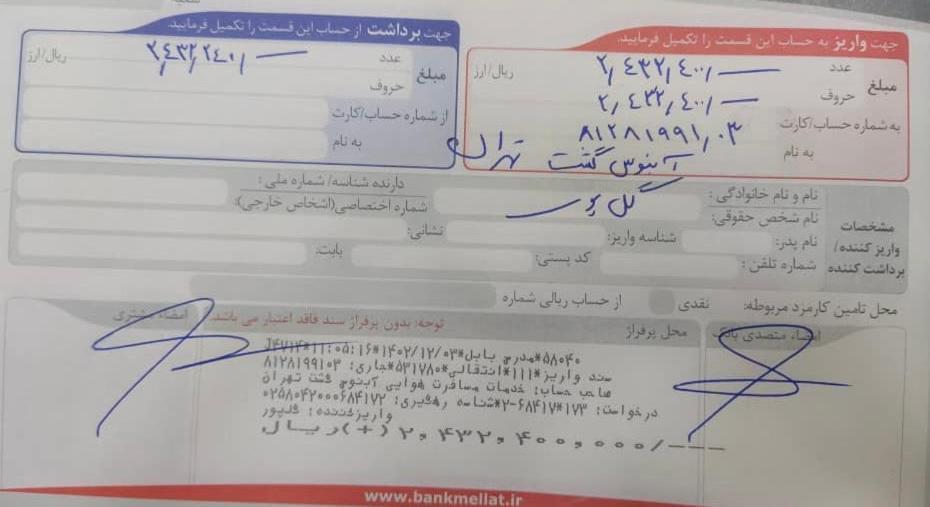 جهت واریز به حساب این قسمت را تکمیل فرمایید.
مبلغ
عدد ۲,۴۳۲,۴۰۰,— ریال/ارز
حروف ۲,۴۳۲,۴۰۰,—
به شماره حساب/کارت ۸۱۲۸۱۹۹۱,۰۳
به نام آبنوس گشت تهران
جهت برداشت از حساب این قسمت را تکمیل فرمایید.
مبلغ
عدد ریال/ارز
حروف
از شماره حساب/کارت
به نام
مشخصات واریز کننده/ برداشت کننده
نام و نام خانوادگی: گل پور
نام شخص حقوقی:
دارنده شناسه/ شماره ملی:
شماره اختصاصی(اشخاص خارجی):
نام پدر: شناسه واریز: نشانی:
شماره تلفن: کد پستی: بابت:
محل تامین کارمزد مربوطه: نقدی از حساب ریالی شماره
امضاء متصدی بانک
محل پرفراژ توجه: بدون پرفراژ سند فاقد اعتبار می باشد.
امضاء مشتری
۵۸۰۴۰*مدرس بابل*۱۴۰۲/۱۲/۰۳*۱۱:۰۵:۱۶*J۴۷۱۴
سند واریز*۱۱۱*انتقالی*۵۳۱۷۸۰*جاری: ۸۱۲۸۱۹۹۱۰۳
صاحب حساب: خدمات مسافرت هوایی آبنوس گشت تهران
درخواست: ۱۷۳*۶۸۴۱۷-۲*شناسه رهگیری: ۰۲۵۸۰۴۲۰۰۰۶۸۴۱۷۲
واریزکننده: گلپور
۲,۴۳۲,۴۰۰,۰۰۰/---(+)ریال
www.bankmellat.ir